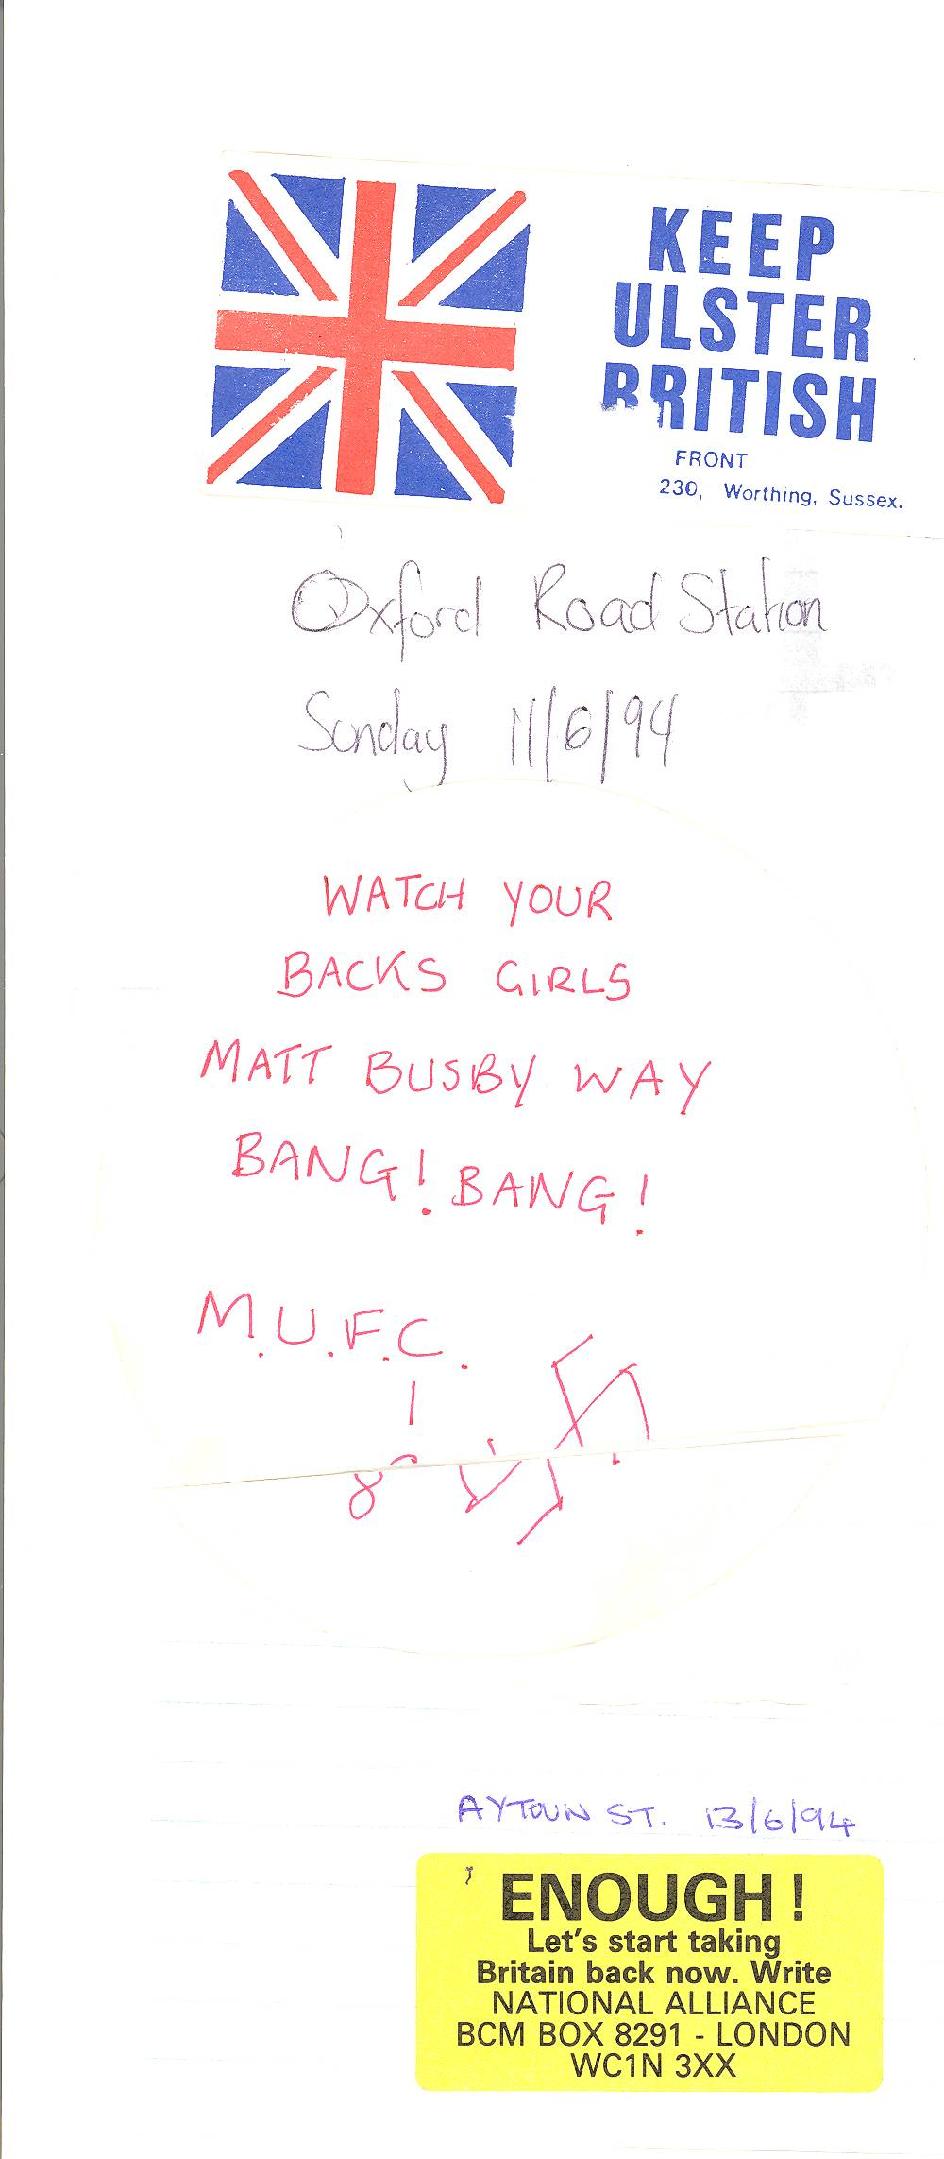 KEEP
ULSTER
BRITISH
FRONT
230, Worthing, Sussex.
Oxford Road Station
Sunday 11/6/94
WATCH YOUR
BACKS GIRLS
MATT BUSBY WAY
BANG! BANG!
M.U.F.C.
AYTOUN ST. 13/6/94
ENOUGH!
Let's start taking
Britain back now. Write
NATIONAL ALLIANCE
BCM BOX 8291 - LONDON
WC1N 3XX